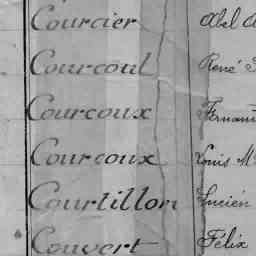 Courcier Abel
Courcoul René
Courcoux Fernand
Courcoux Louis M
Courtillon Lucien
Couvert Félix